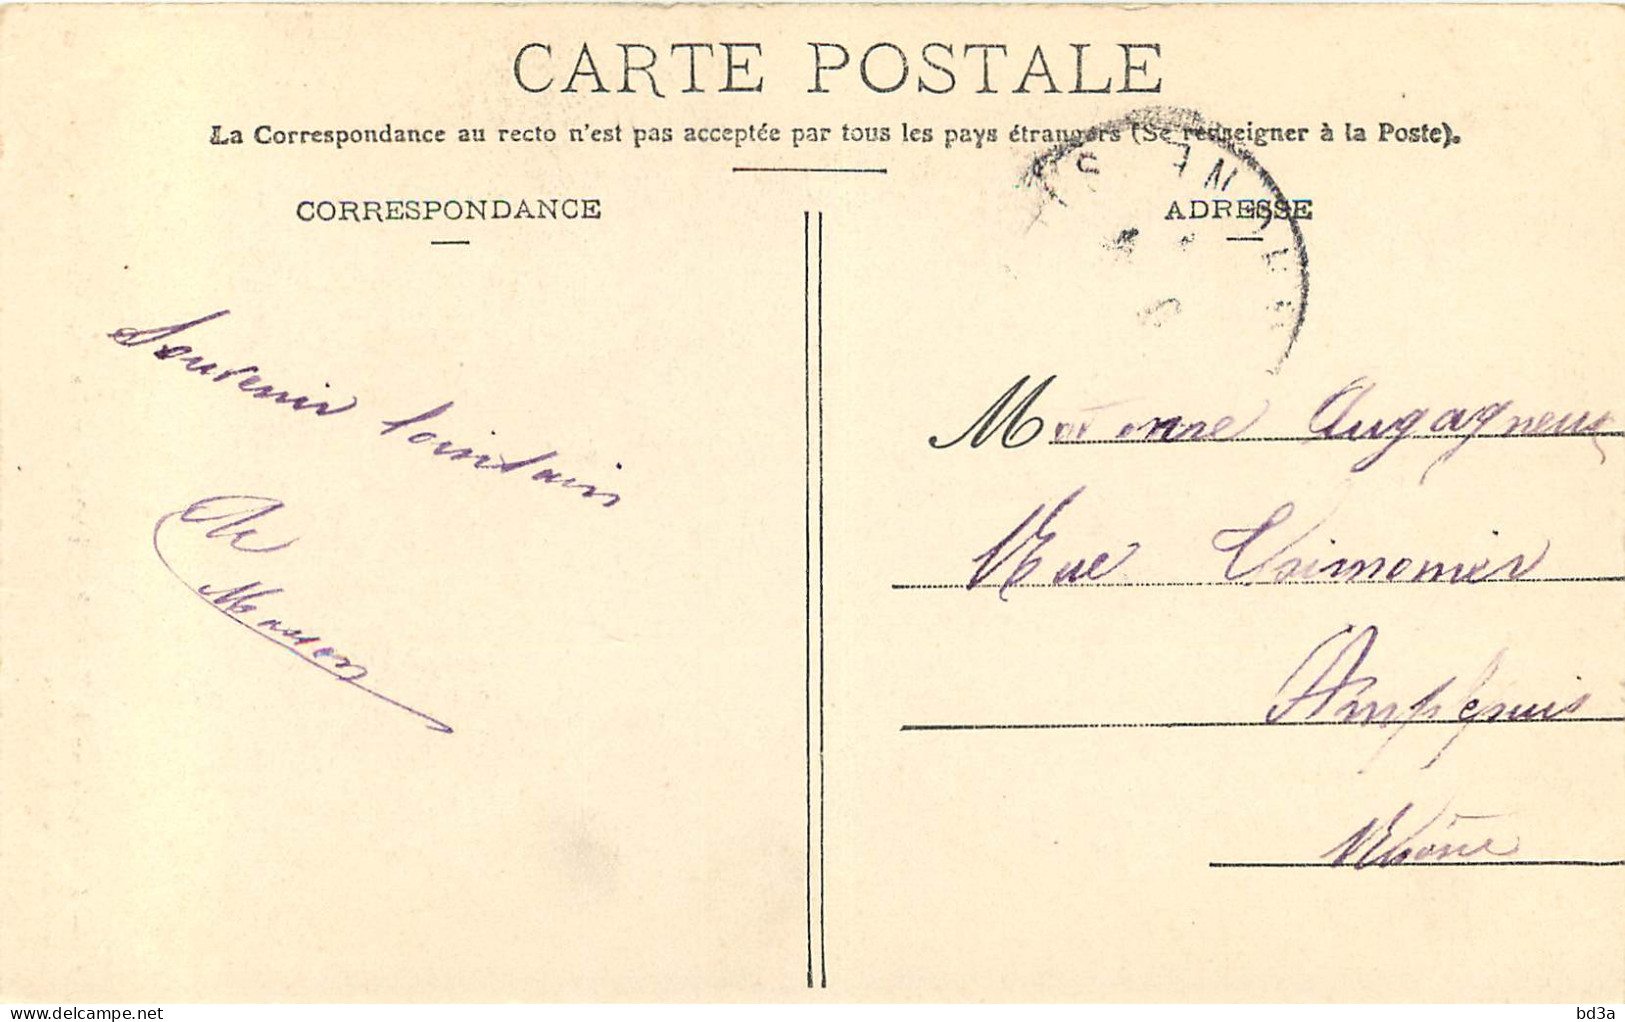 CARTE POSTALE
La Correspondance au recto n'est pas acceptée par tous les pays étrangers (Se renseigner à la Poste).
CORRESPONDANCE
ADRESSE
Souvenir lointain
Masson
M Augagneur
Rue
Amplepuis
Rhône
delcampe.net
bd3a